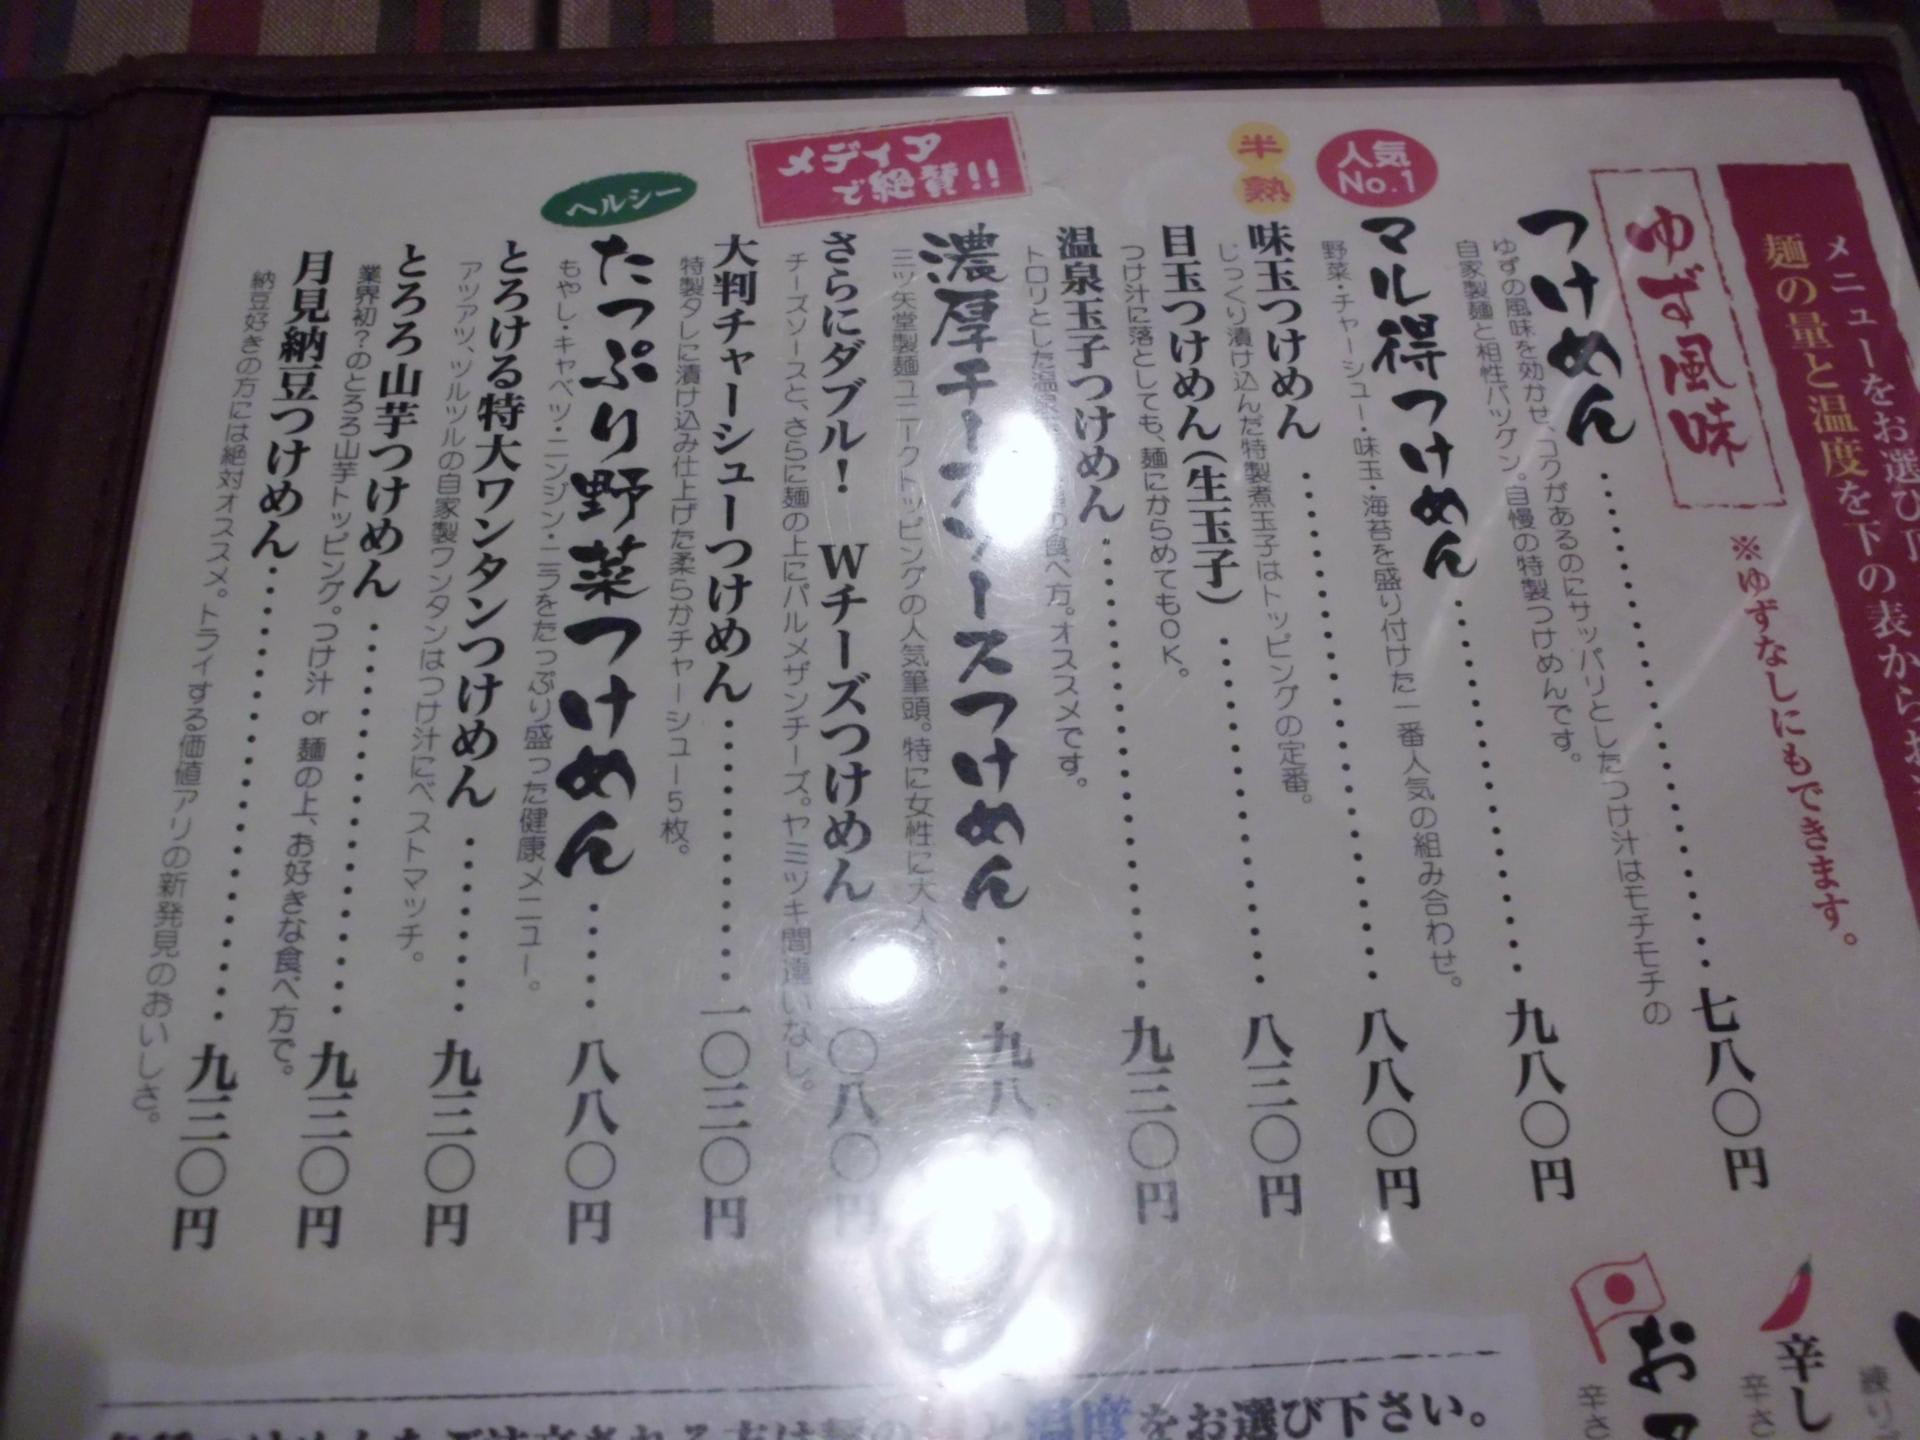 メニューをお選び頂
麺の量と温度を下の表からお
ゆず風味
※ゆずなしにもできます。
つけめん 七八〇円
ゆずの風味を効かせ、コクがあるのにサッパリとしたつけ汁はモチモチの
自家製麺と相性バツグン。自慢の特製つけめんです。
人気
No.1
マル得つけめん 九八〇円
野菜・チャーシュー・味玉・海苔を盛り付けた一番人気の組み合わせ。
半熟
味玉つけめん 八八〇円
じっくり漬け込んだ特製煮玉子はトッピングの定番。
目玉つけめん（生玉子） 八三〇円
つけ汁に落としても、麺にからめてもOK。
温泉玉子つけめん 九三〇円
トロリとした温 の食べ方。オススメです。
メディア
で絶賛!!
濃厚チーズソースつけめん 九八
三ツ矢堂製麺ユニークトッピングの人気筆頭。特に女性に大人
さらにダブル！ Wチーズつけめん 一〇八〇円
チーズソースと、さらに麺の上にパルメザンチーズ。ヤミツキ間違いなし。
大判チャーシューつけめん 一〇三〇円
特製タレに漬け込み仕上げた柔らかチャーシュー5枚。
ヘルシー
たっぷり野菜つけめん 八八〇円
もやし・キャベツ・ニンジン・ニラをたっぷり盛った健康メニュー。
とろける特大ワンタンつけめん 九三〇円
アツアツ、ツルツルの自家製ワンタンはつけ汁にベストマッチ。
とろろ山芋つけめん 九三〇円
業界初？のとろろ山芋トッピング。つけ汁 or 麺の上、お好きな食べ方で。
月見納豆つけめん 九三〇円
納豆好きの方には絶対オススメ。トライする価値アリの新発見のおいしさ。
練り
辛し
辛さ
お
辛さ
温度をお選び下さい。